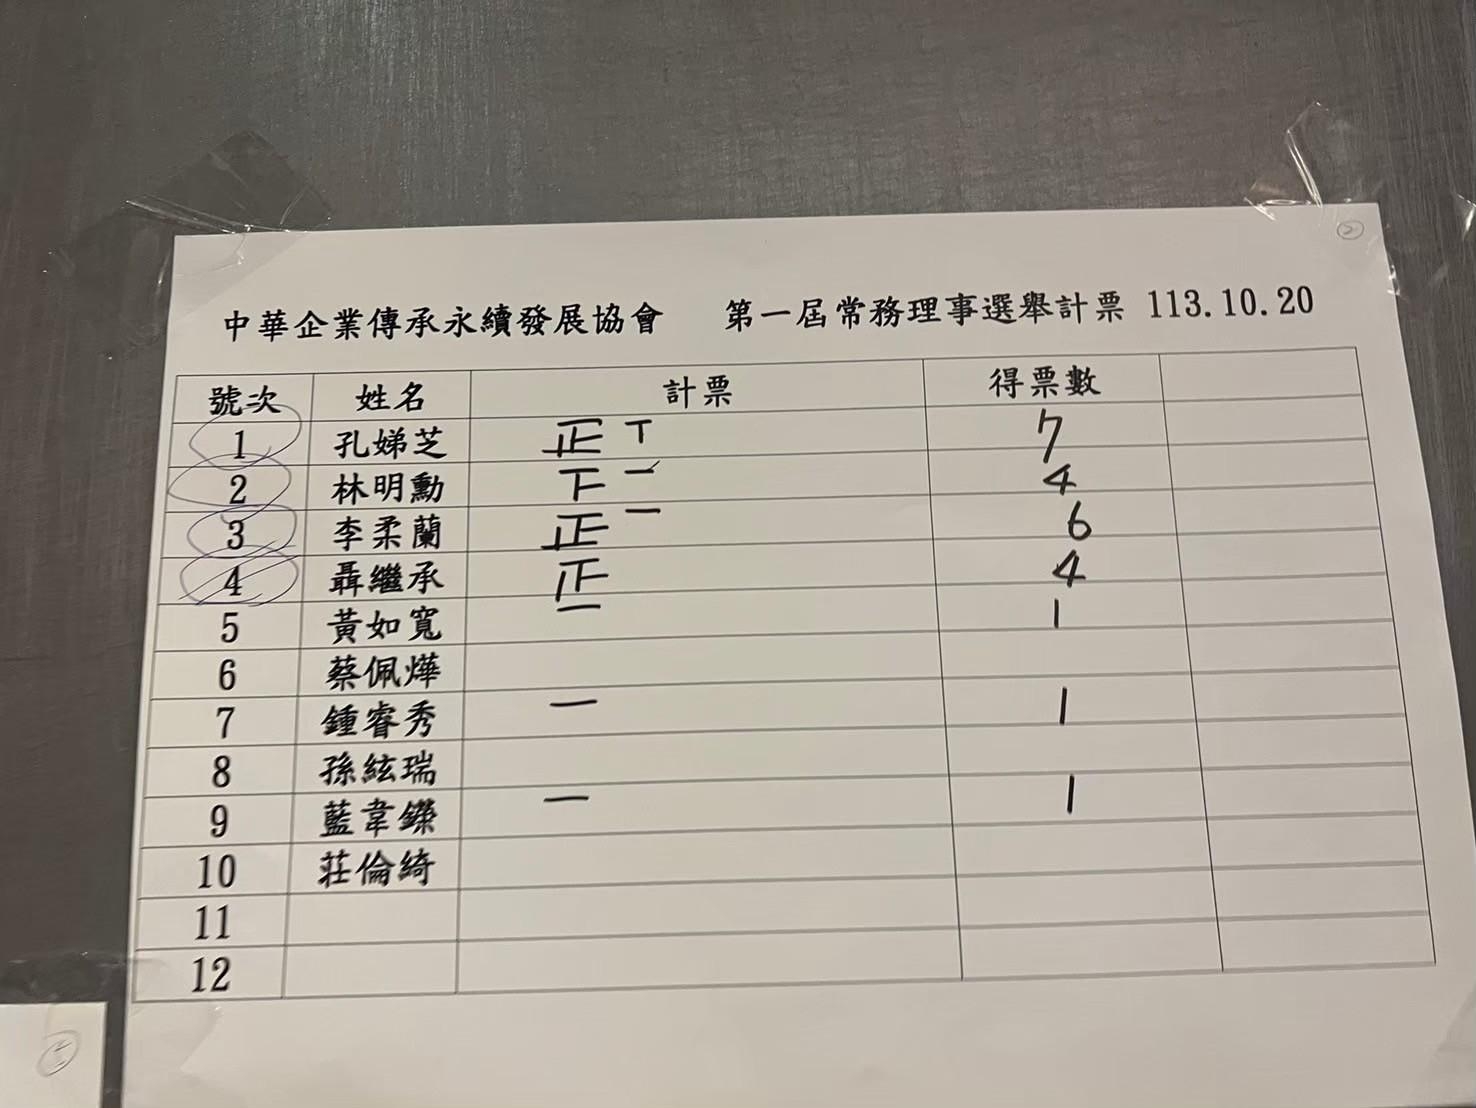 ②
中華企業傳承永續發展協會 第一屆常務理事選舉計票 113.10.20
號次 姓名 計票 得票數
1 孔娣芝 正 T 7
2 林明勳 下 一 4
3 李柔蘭 正 一 6
4 聶繼承 正 4
5 黃如寬 一 1
6 蔡佩燁
7 鍾睿秀 一 1
8 孫絃瑞
9 藍韋鑠 一 1
10 莊倫綺
11
12